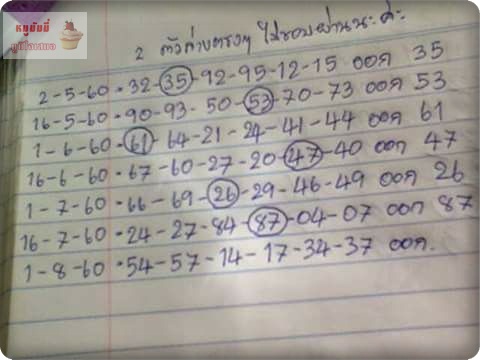 หนูยิ้มยิ้ม
2 ตัวล่างตรงๆ ไม่ชอบผ่านนะค่ะ
2-5-60 • 32-35-92-95-12-15 ออก 35
16-5-60 • 90-93-50-53-70-73 ออก 53
1-6-60 • 61-64-21-24-41-44 ออก 61
16-6-60 • 67-60-27-20-47-40 ออก 47
1-7-60 • 66-69-26-29-46-49 ออก 26
16-7-60 • 24-27-84-87-04-07 ออก 87
1-8-60 • 54-57-14-17-34-37 ออก.